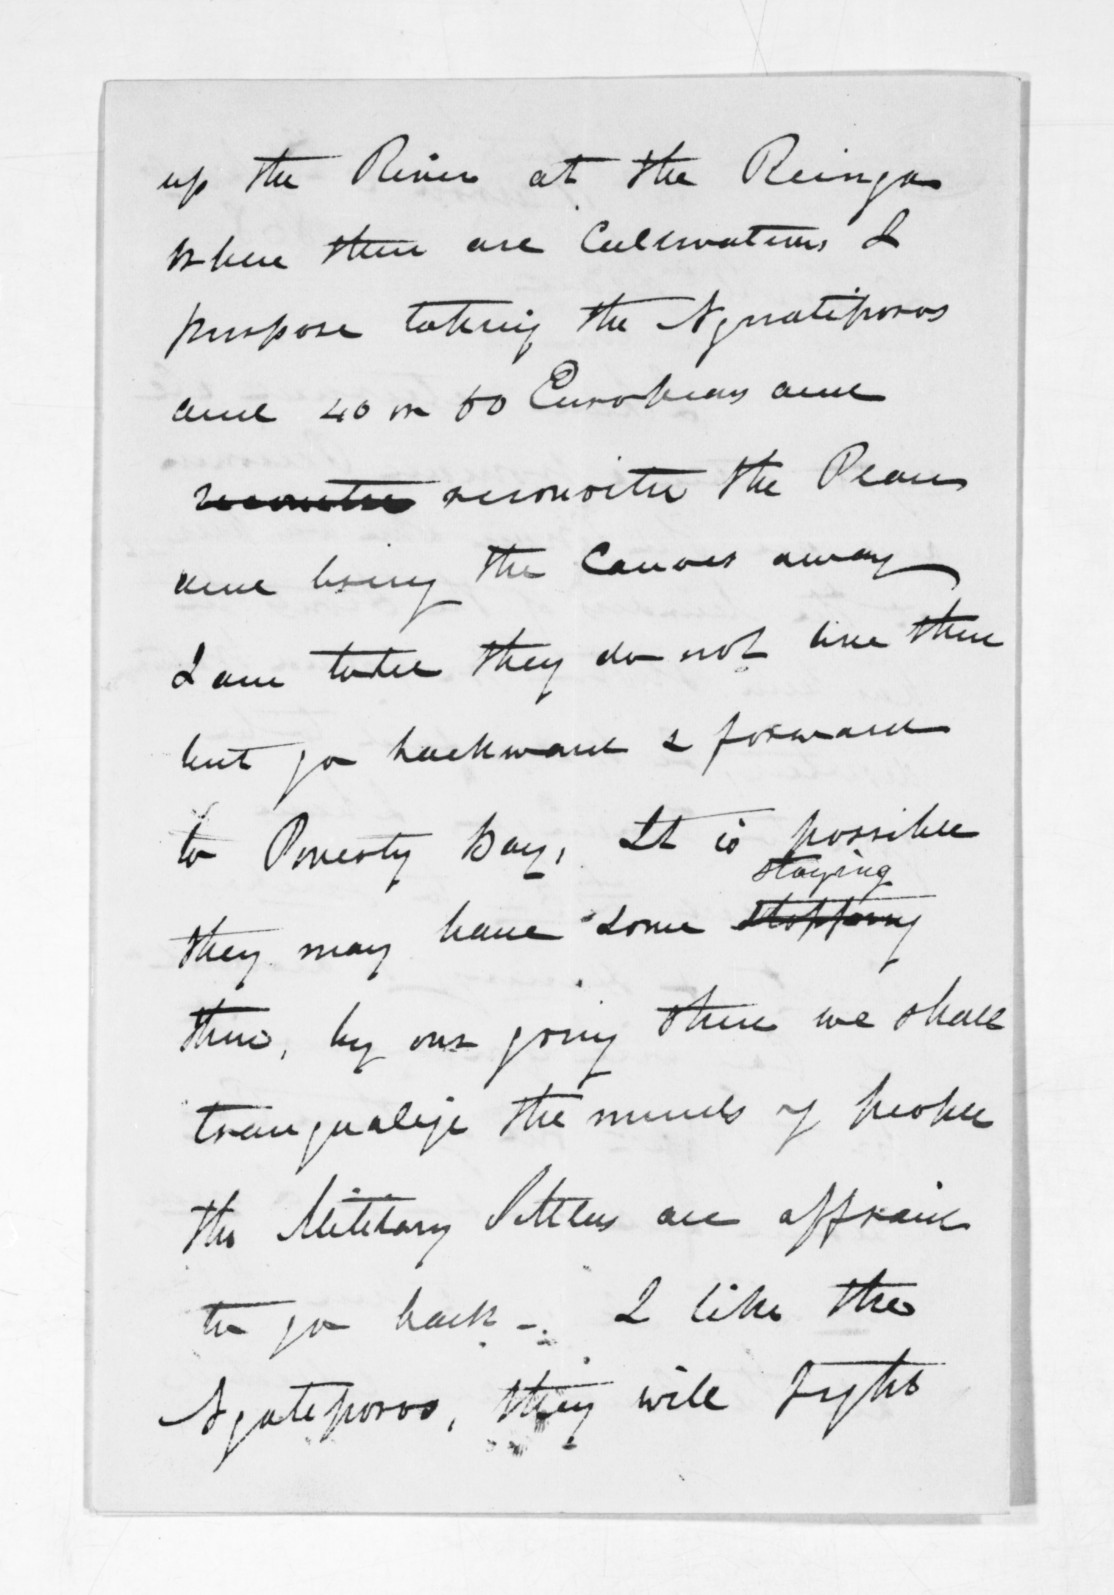 up the River at the Reinga
where there are Cultivations I
purpose taking the Nguatiporos
and 40 or 50 Europeans and
reconoitre reconoitre the Place
and bring the Canoes away
I am told they do not live there
but go backward & forward
to Poverty Bay, It is possible
staying
they may have some stopping
there, by our going there we shall
tranqualize the minds of people
the Military Settlers are affraid
to go back - I like the
Ngatiporos, they will fight